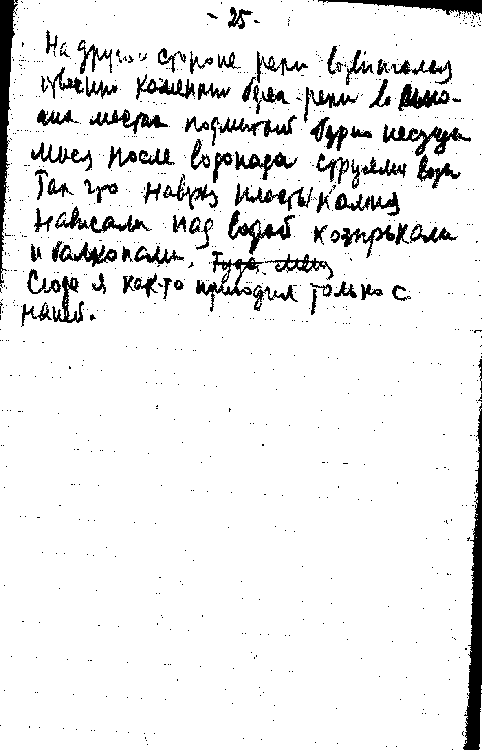 - 25 -
На другой стороне реки возвышался
каменный берег реки во
местах подмытый бурно несущи
мися после водопада струями воды
Так что наверху пласты камня
нависали над водой козырьками
и балконами. Туда
Сюда я как-то приходил только с
папой.